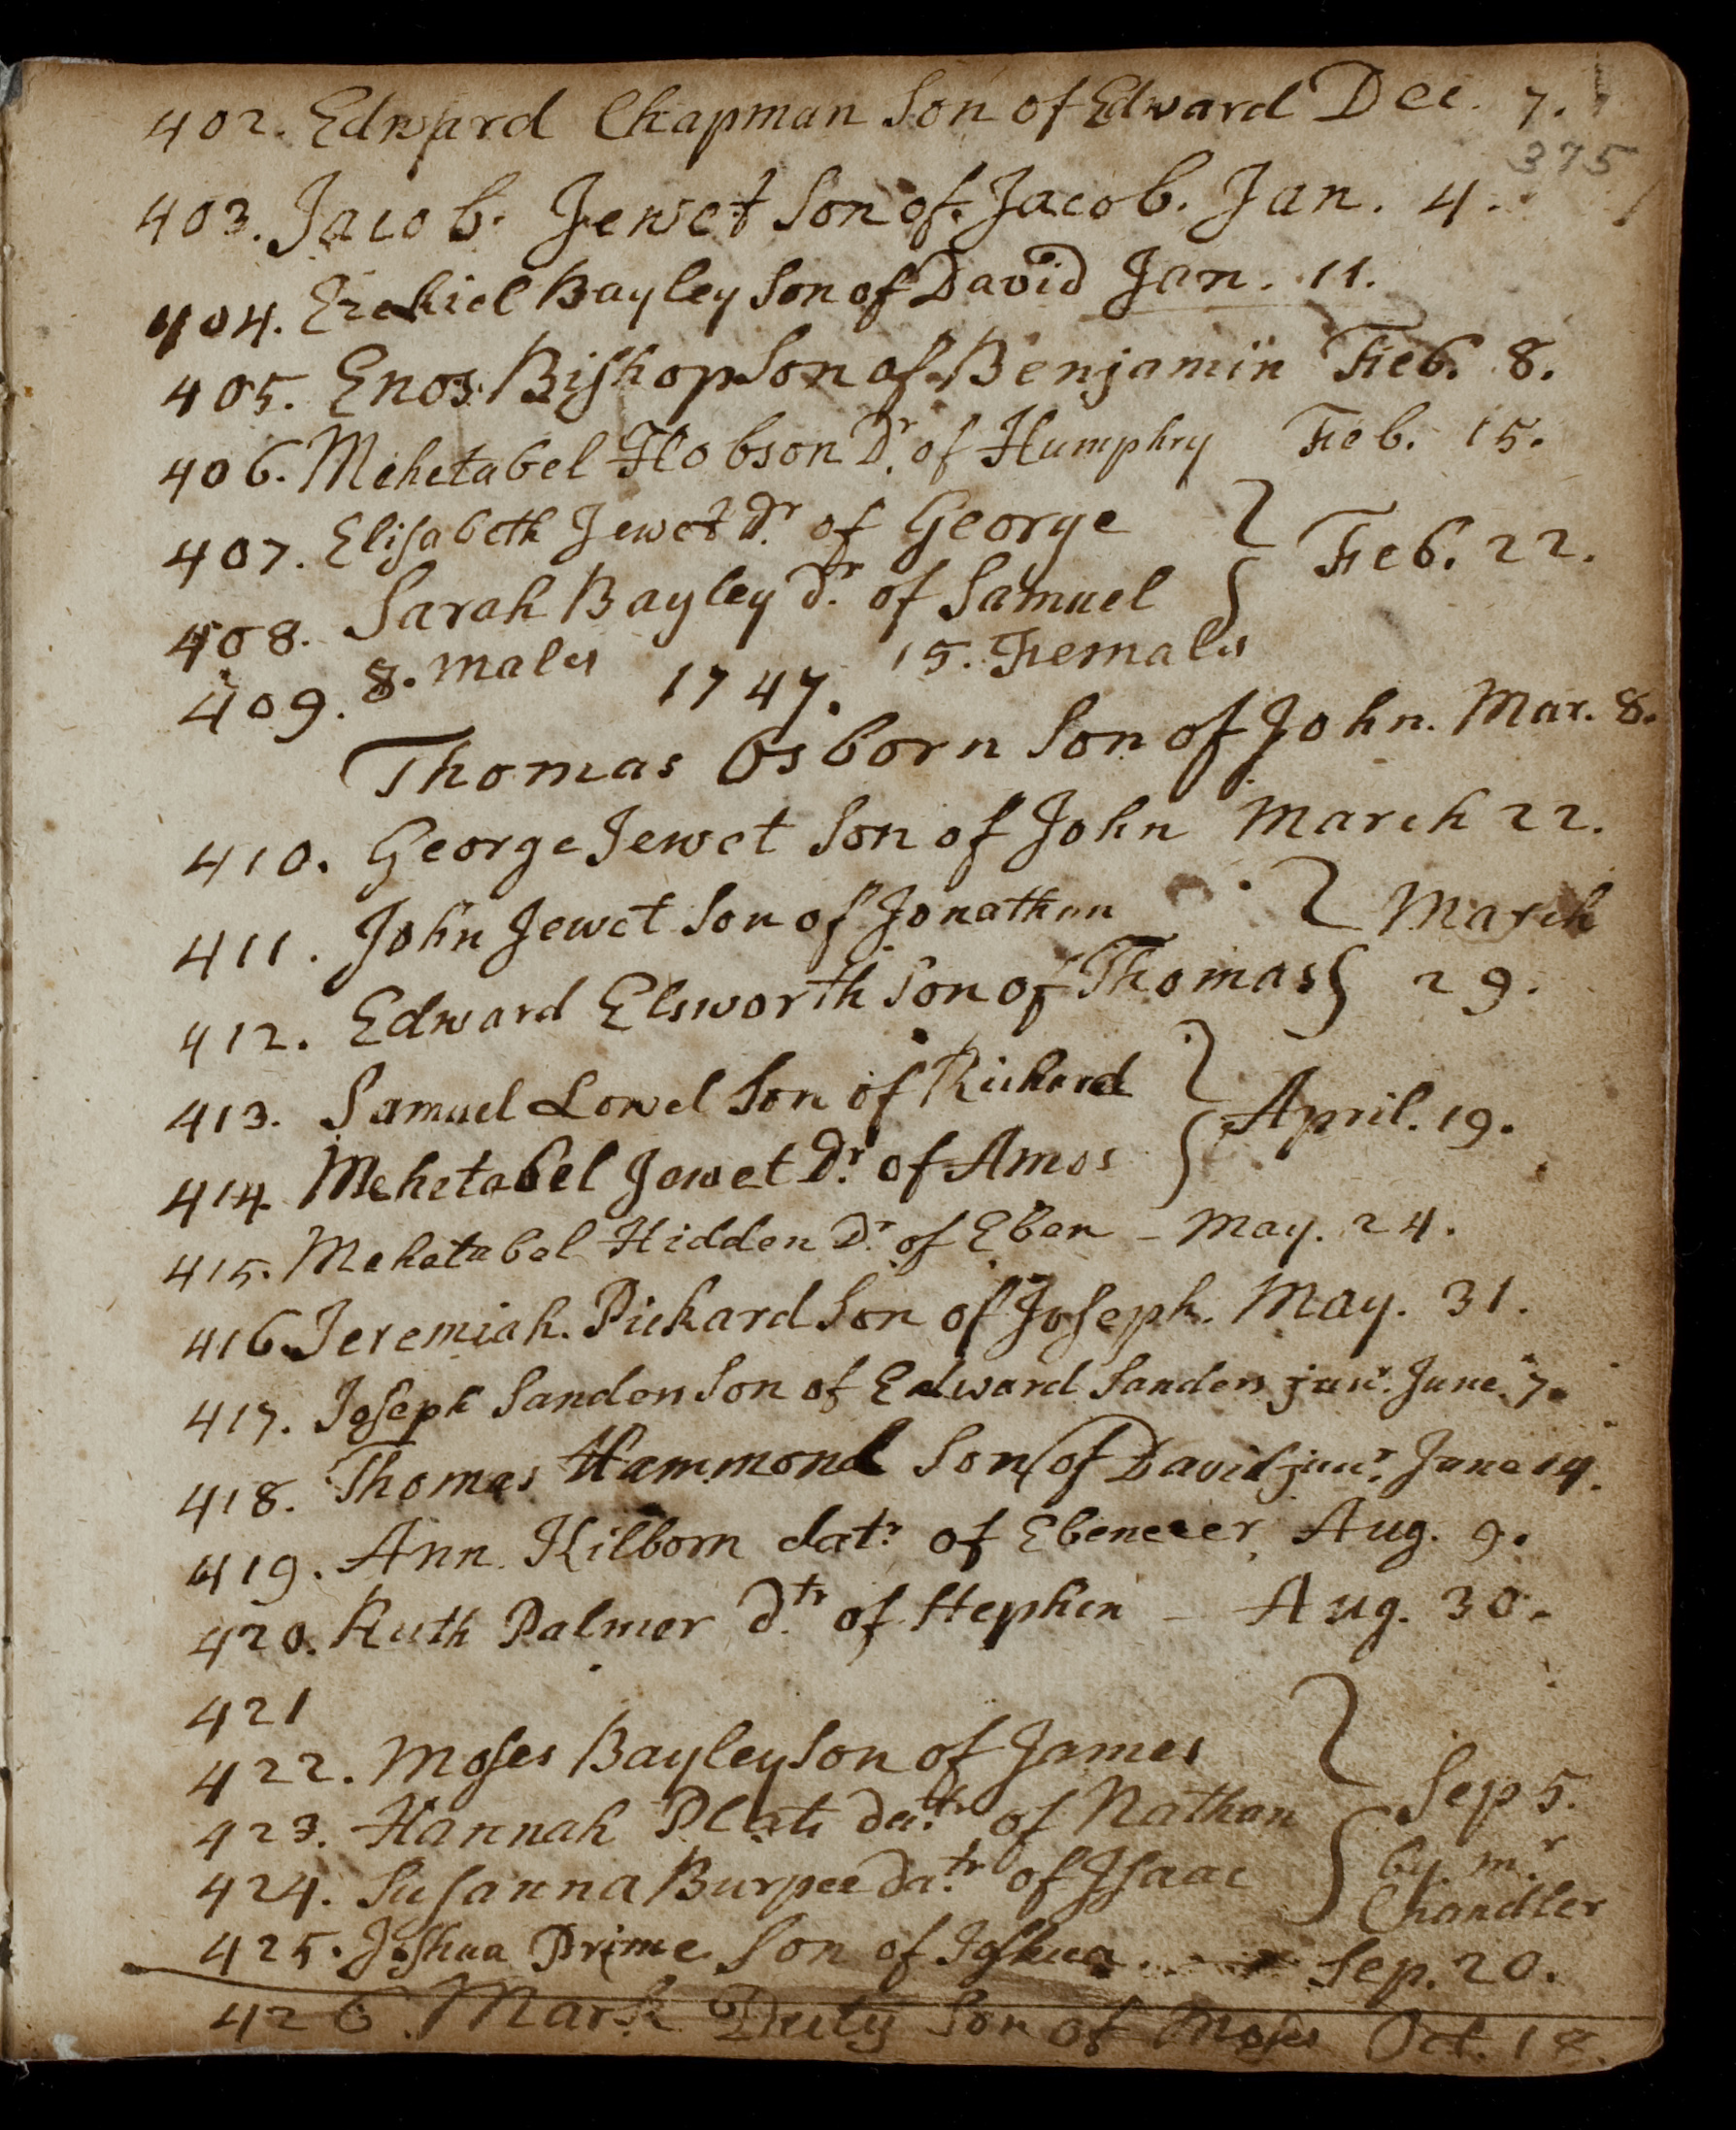 402. Edward Chapman Son of Edward Dec. 7.
375
403. Jacob. Jewet Son of Jacob. Jan. 4.
404. Ezekiel Bayley Son of David Jan. 11.
405. Enos Bishop Son of Benjamin Feb. 8.
406. Mehetabel Hobson Dr. of Humphry Feb. 15.
407. Elisabeth Jewet Dr. of George
Feb. 22.
408. Sarah Bayley dr. of Samuel
409. 8. males 1747. 15. Females
Thomas Osborn Son of John. Mar. 8.
410. George Jewet Son of John March 22.
411. John Jewet Son of Jonathan March
412. Edward Elsworth Son of Thomas 29.
413. Samuel Lowel Son of Richard
April. 19.
414. Mehetabel Jewet Dr. of Amos
415. Mehetabel Hidden Dr. of Eben - May. 24.
416. Jeremiah. Pickard Son of Joseph. May. 31.
417. Joseph Sanders Son of Edward Sanders junr. June. 7.
418. Thomas Hammond Son of David junr. June 14.
419. Ann Kilborn datr. of Ebenezer Aug. 9.
420. Ruth Palmer dtr. of Stephen - Aug. 30.
421
422. Moses Bayley Son of James
Sep 5.
423. Hannah Plats datr. of Nathan
by mr.
424. Susanna Burpee datr. of Isaac
Chandler
425. Joshua Prime Son of Joshua. Sep. 20.
426. Mark Duty Son of Moses Oct. 18.